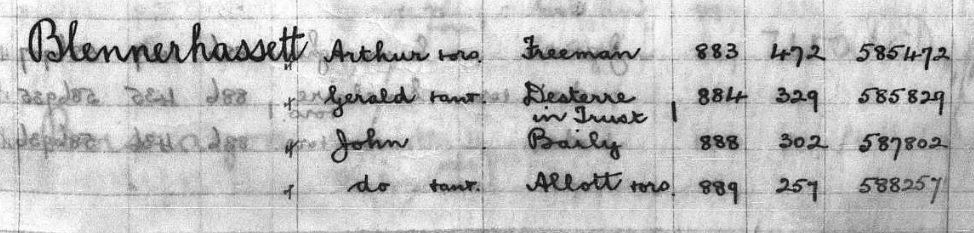 Blennerhassett Arthur & ors. Freeman 883 472 585472
" Gerald & anr. Desterre 884 329 585829
in Trust
" John Baily 888 302 587802
" do & anr. Allott & ors. 889 257 588257